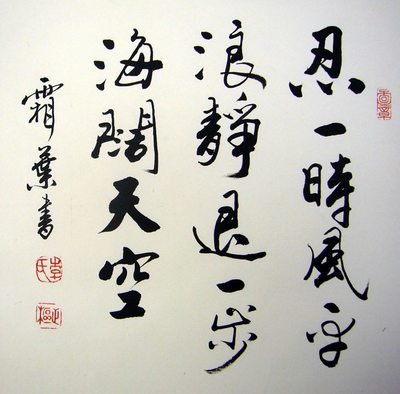 忍一時風平
浪靜退一步
海闊天空
霜葉書
李氏